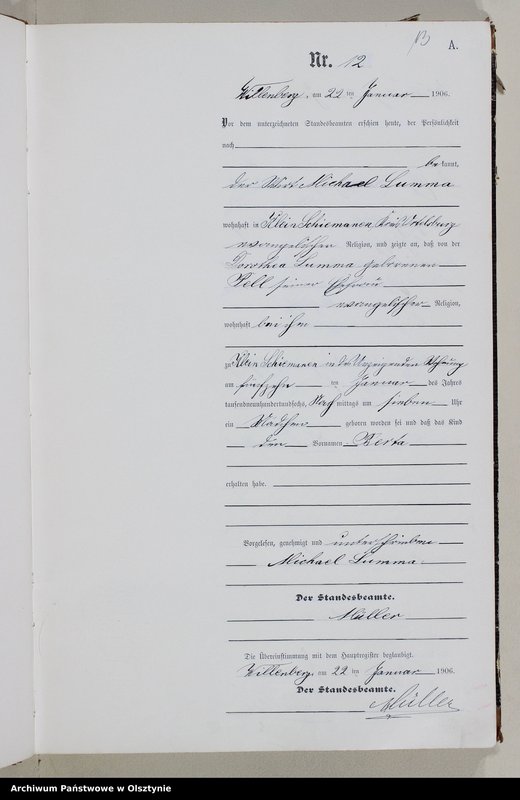 13 A.
Nr. 12
Willenberg, am 22 ten Januar 1906.
Vor dem unterzeichneten Standesbeamten erschien heute, der Persönlichkeit
nach
bekannt,
der Wirt Michael Lumma
wohnhaft in Klein Schiemanen, Kreis Ortelsburg
evangelischer Religion, und zeigte an, daß von der
Dorothea Lumma geborenen
Fell seiner Ehefrau
evangelischer Religion,
wohnhaft bei ihm
zu Klein Schiemanen in des Anzeigenden Wohnung
am fünfzehn ten Januar des Jahres
tausendneunhundertundsechs, Nachmittags um sieben Uhr
ein Mädchen geboren worden sei und daß das Kind
den Vornamen Berta
erhalten habe.
Vorgelesen, genehmigt und unterschrieben
Michael Lumma
Der Standesbeamte.
Müller
Die Übereinstimmung mit dem Hauptregister beglaubigt.
Willenberg, am 22 ten Januar 1906.
Der Standesbeamte.
Müller
Archiwum Państwowe w Olsztynie